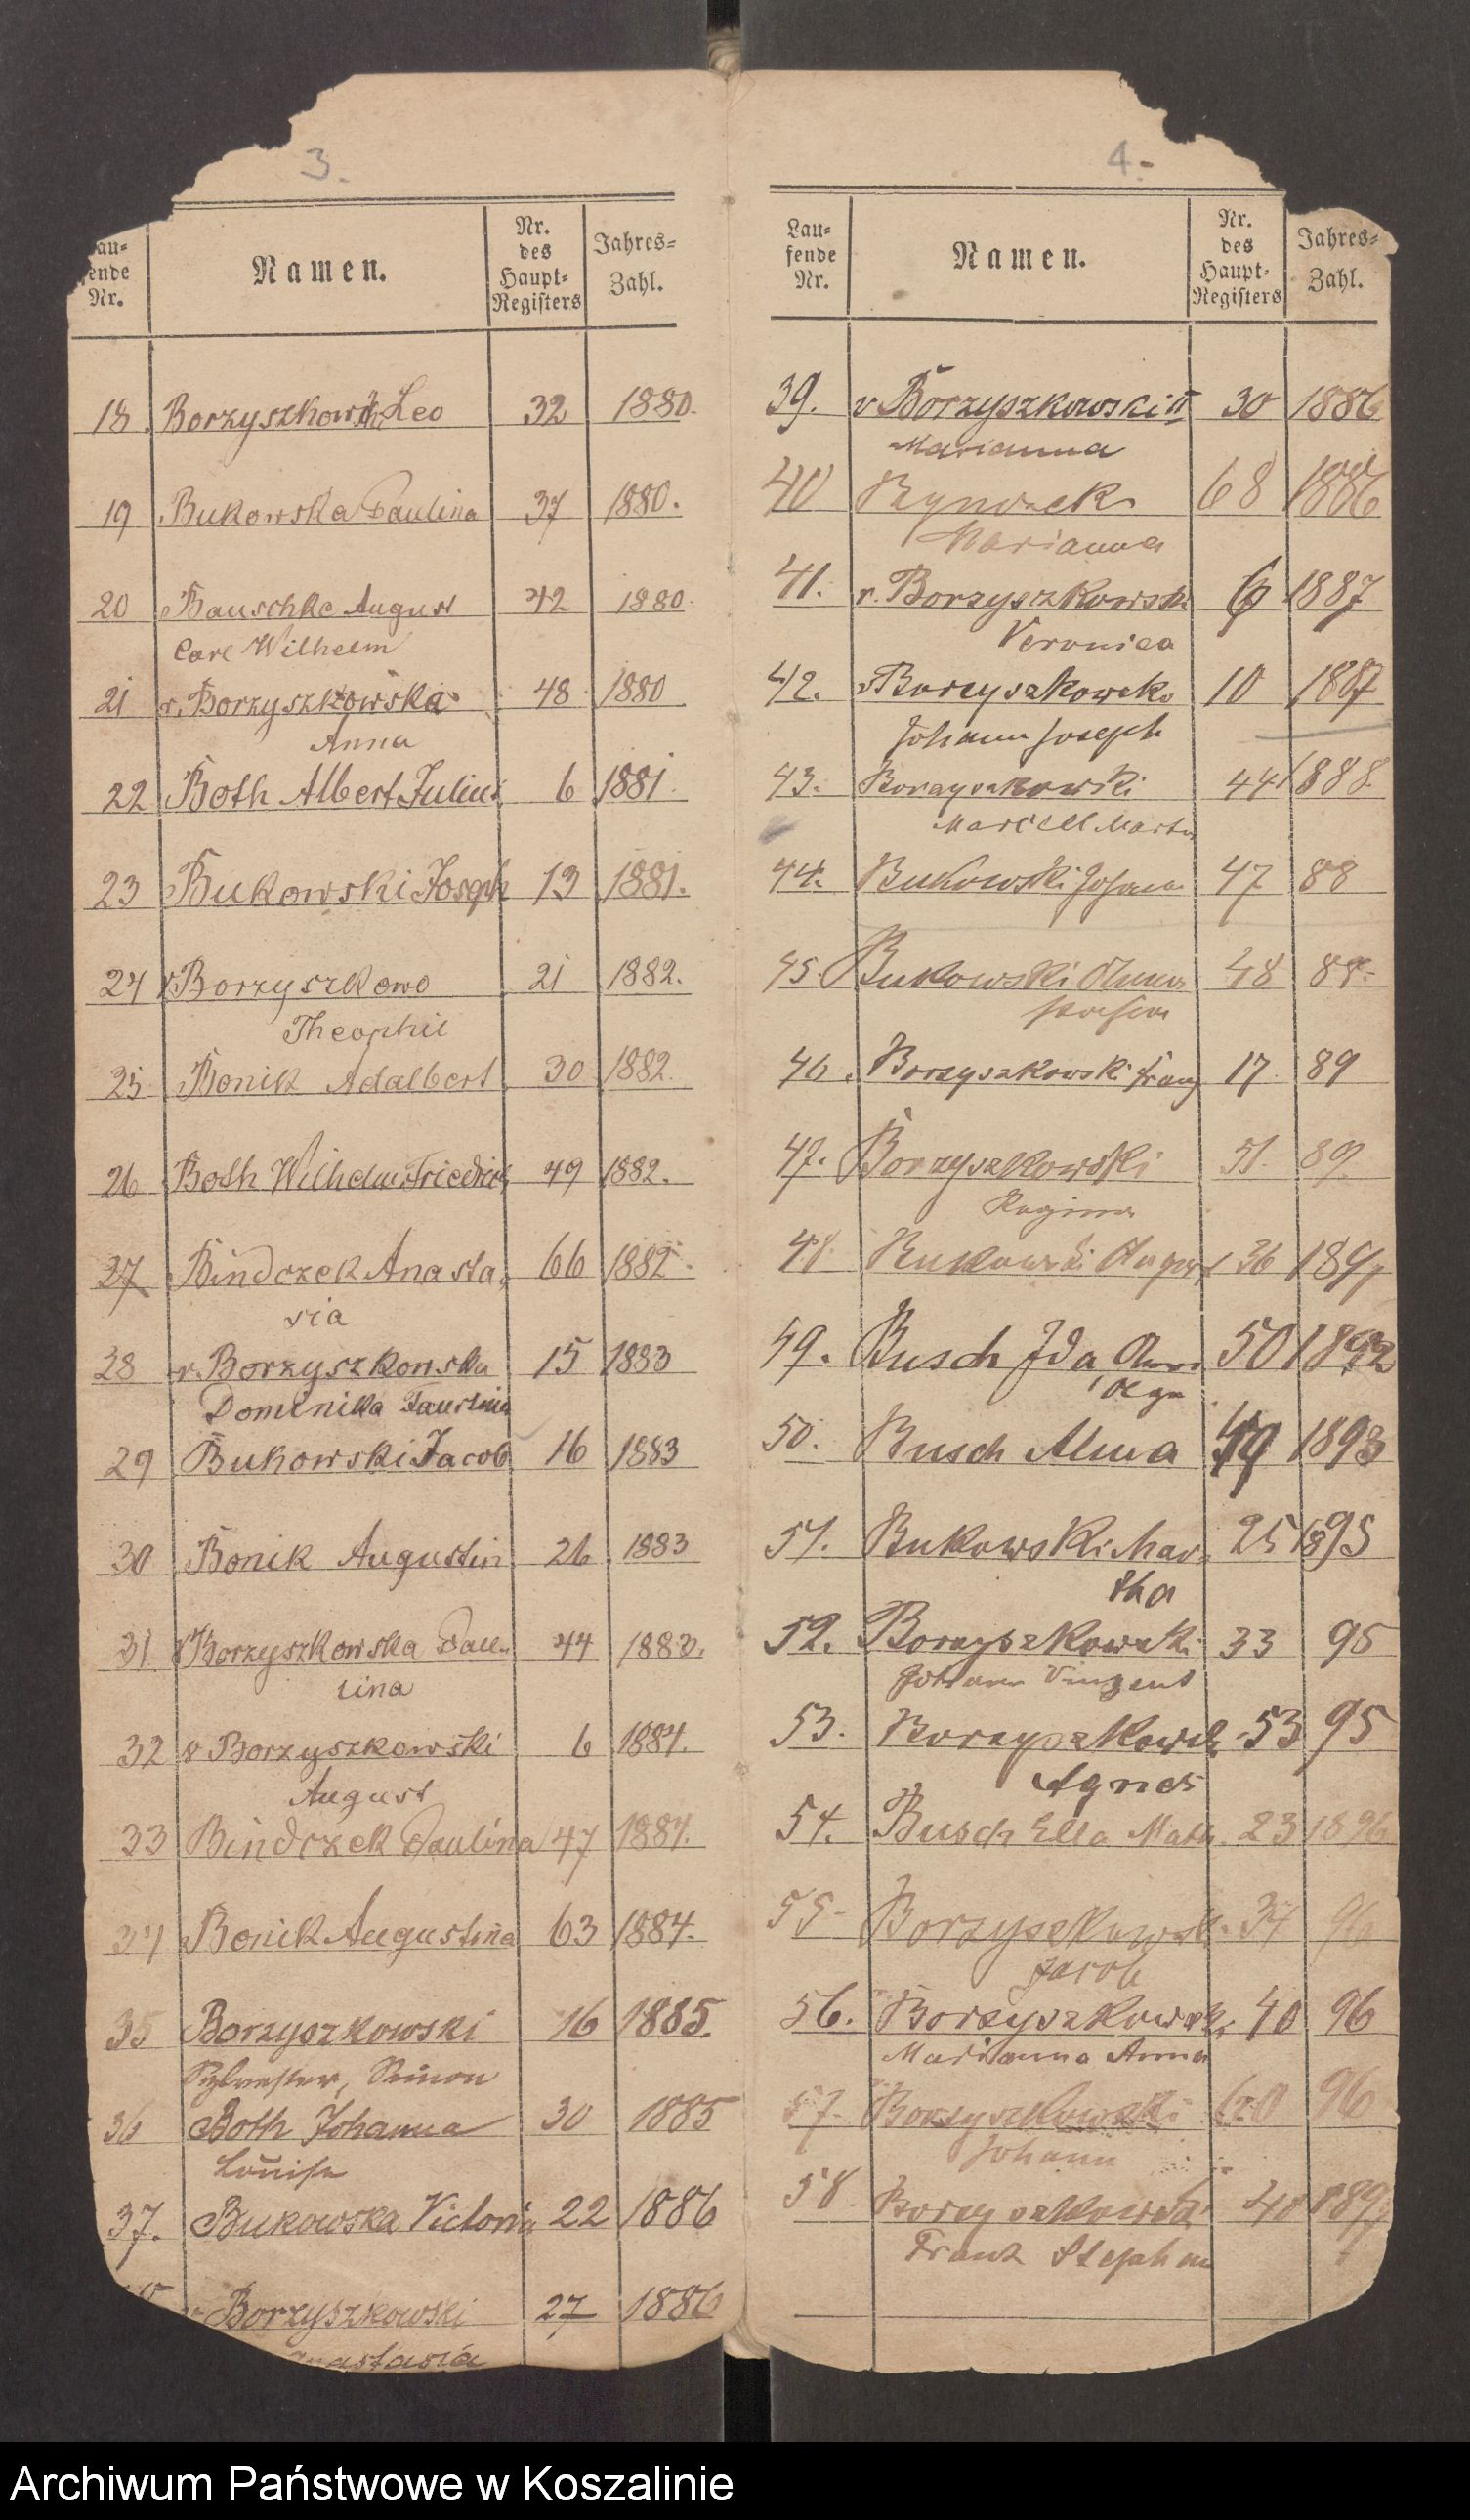 3.
Nr. des Haupt-Registers
Jahres-Zahl.
Namen.
Nr.
18 Borzyszkowski Leo 32 1880.
19 Bukowska Paulina 37 1880.
20 Bauschke August 42 1880.
Carl Wilhelm
21 v. Borzyszkowska 48 1880
Anna
22 Both Albert Julius 6 1881.
23 Bukowski Joseph 13 1881.
24 v Borzyszkowo 21 1882.
Theophil
25 Bonik Adalbert 30 1882.
26 Both Wilhelm Friedrich 49 1882.
27 Bindczek Anasta- 66 1882.
sia
28 v. Borzyszkowska 15 1883
Dominika Faustina
29 Bukowski Jacob 16 1883
30 Bonik Augustin 26 1883
31 v Borzyszkowska Pau- 44 1883.
lina
32 v Borzyszkowski 6 1884.
August
33 Bindczek Paulina 47 1884.
34 Bonik Augustina 63 1884.
35 Borzyszkowski 16 1885.
Sylvester, Simon
36 Both Johanna 30 1885
Louise
37. Bukowska Victoria 22 1886
Borzyszkowski 27 1886
4.-
Laufende Nr.
Namen.
Nr. des Haupt-Registers
Jahres-Zahl.
39. v Borzyszkowski 30 1886
Marianna
40 68 1886
Marianna
41. v. Borzyszkowski 6 1887
Veronica
42. v Borzyszkowski 10 1887
Johann Joseph
43. Borzyszkowski 44 1888.
Marcell Martin
44. Bukowski Johann 47 88
45. Bukowski 48 88.
46. Borzyszkowski Franz 17 89
47. Borzyszkowski 51. 89.
Regina
48. Bukowski August 36 1891
49. Busch Ida 50 1892
Olga
50. Busch Alma 49 1893
51. Bukowski Mar- 25 1895
tha
52. Borzyszkowski 33 95
Johann Vinzent
53. Borzyszkowski 53 95
Agnes
54. Busch Ella Math. 23 1896
55- Borzyszkowski 34 96
Jacob
56. Borzyszkowski 40 96
Marianna Anna
57. Borzyszkowski 60 96
Johann
58. Borzyszkowski 40 1897
Franz Stephan
Archiwum Państwowe w Koszalinie